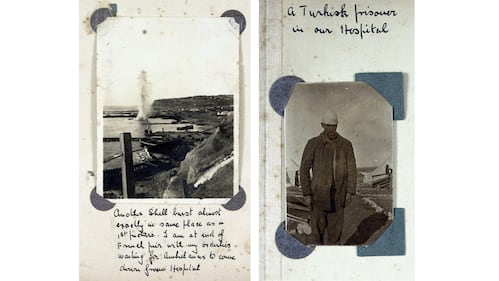 Another Shell burst almost
exactly in same place as in
1st picture. I am at end of
French pier with my orderlies
waiting for Ambulances to come
down from Hospital
A Turkish prisoner
in our Hospital